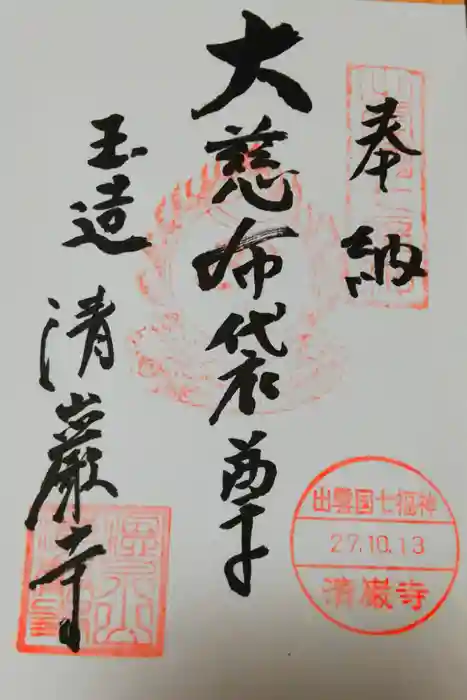 奉納
大慈布袋尊
玉造 清巖寺
出雲国七福神
27.10.13
清巌寺